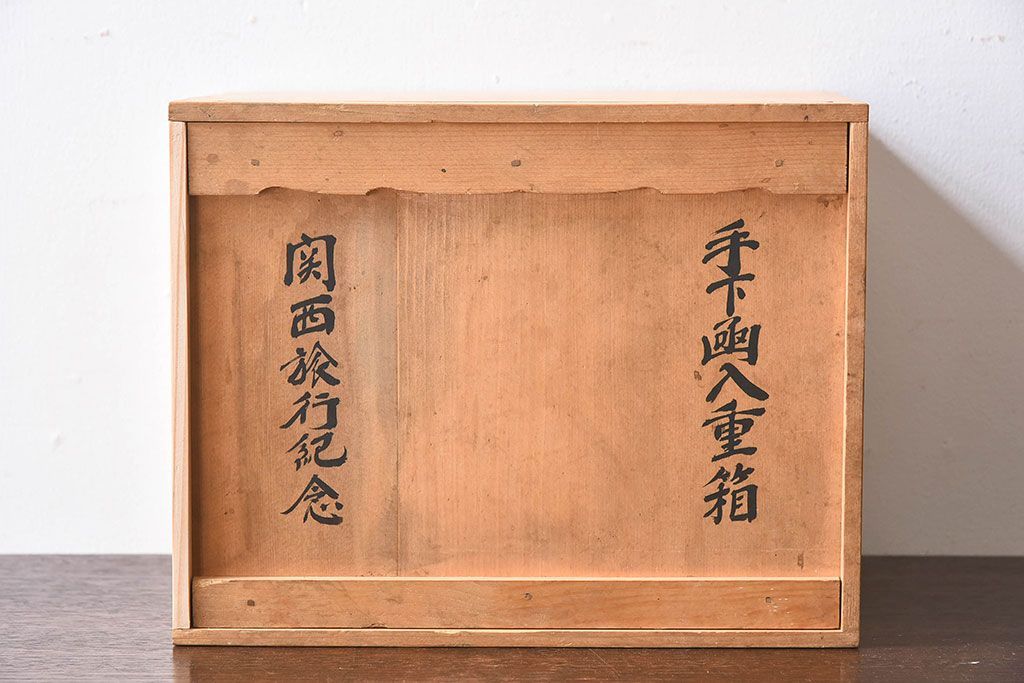 手下函入重箱
関西旅行紀念